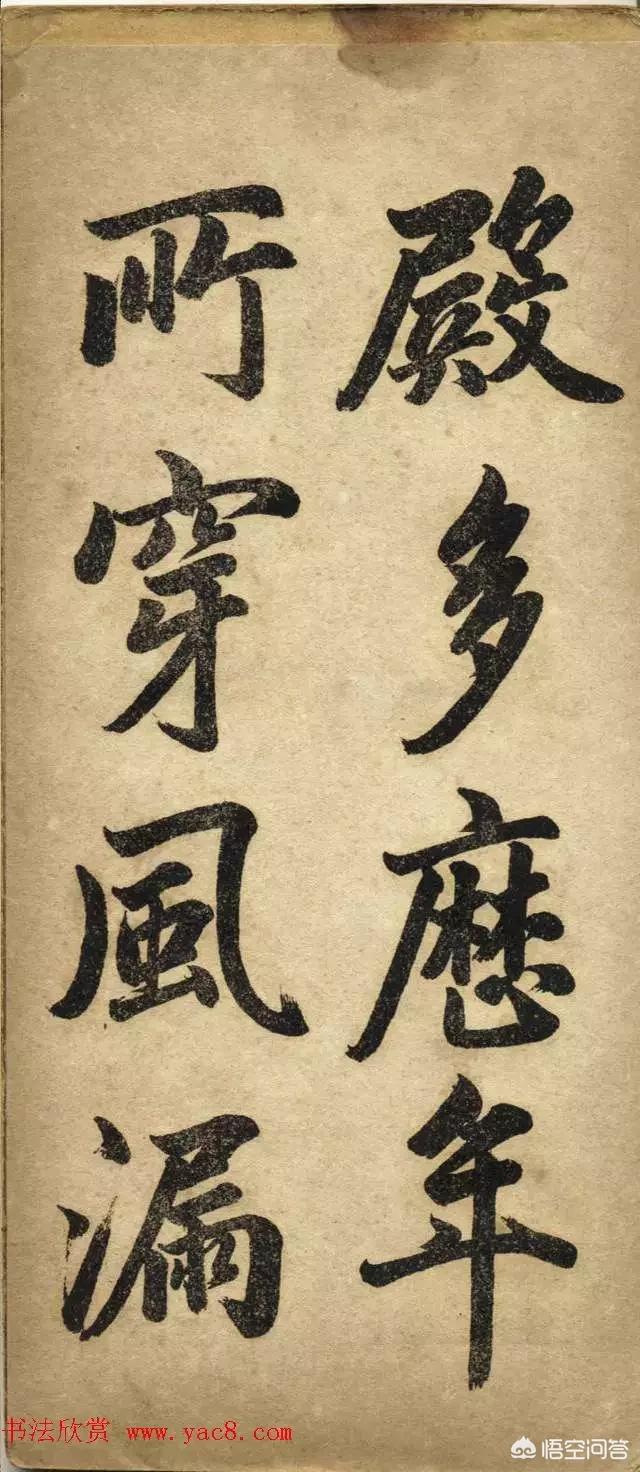 殿多歷年
所穿風漏
书法欣赏 www.yac8.com
悟空问答